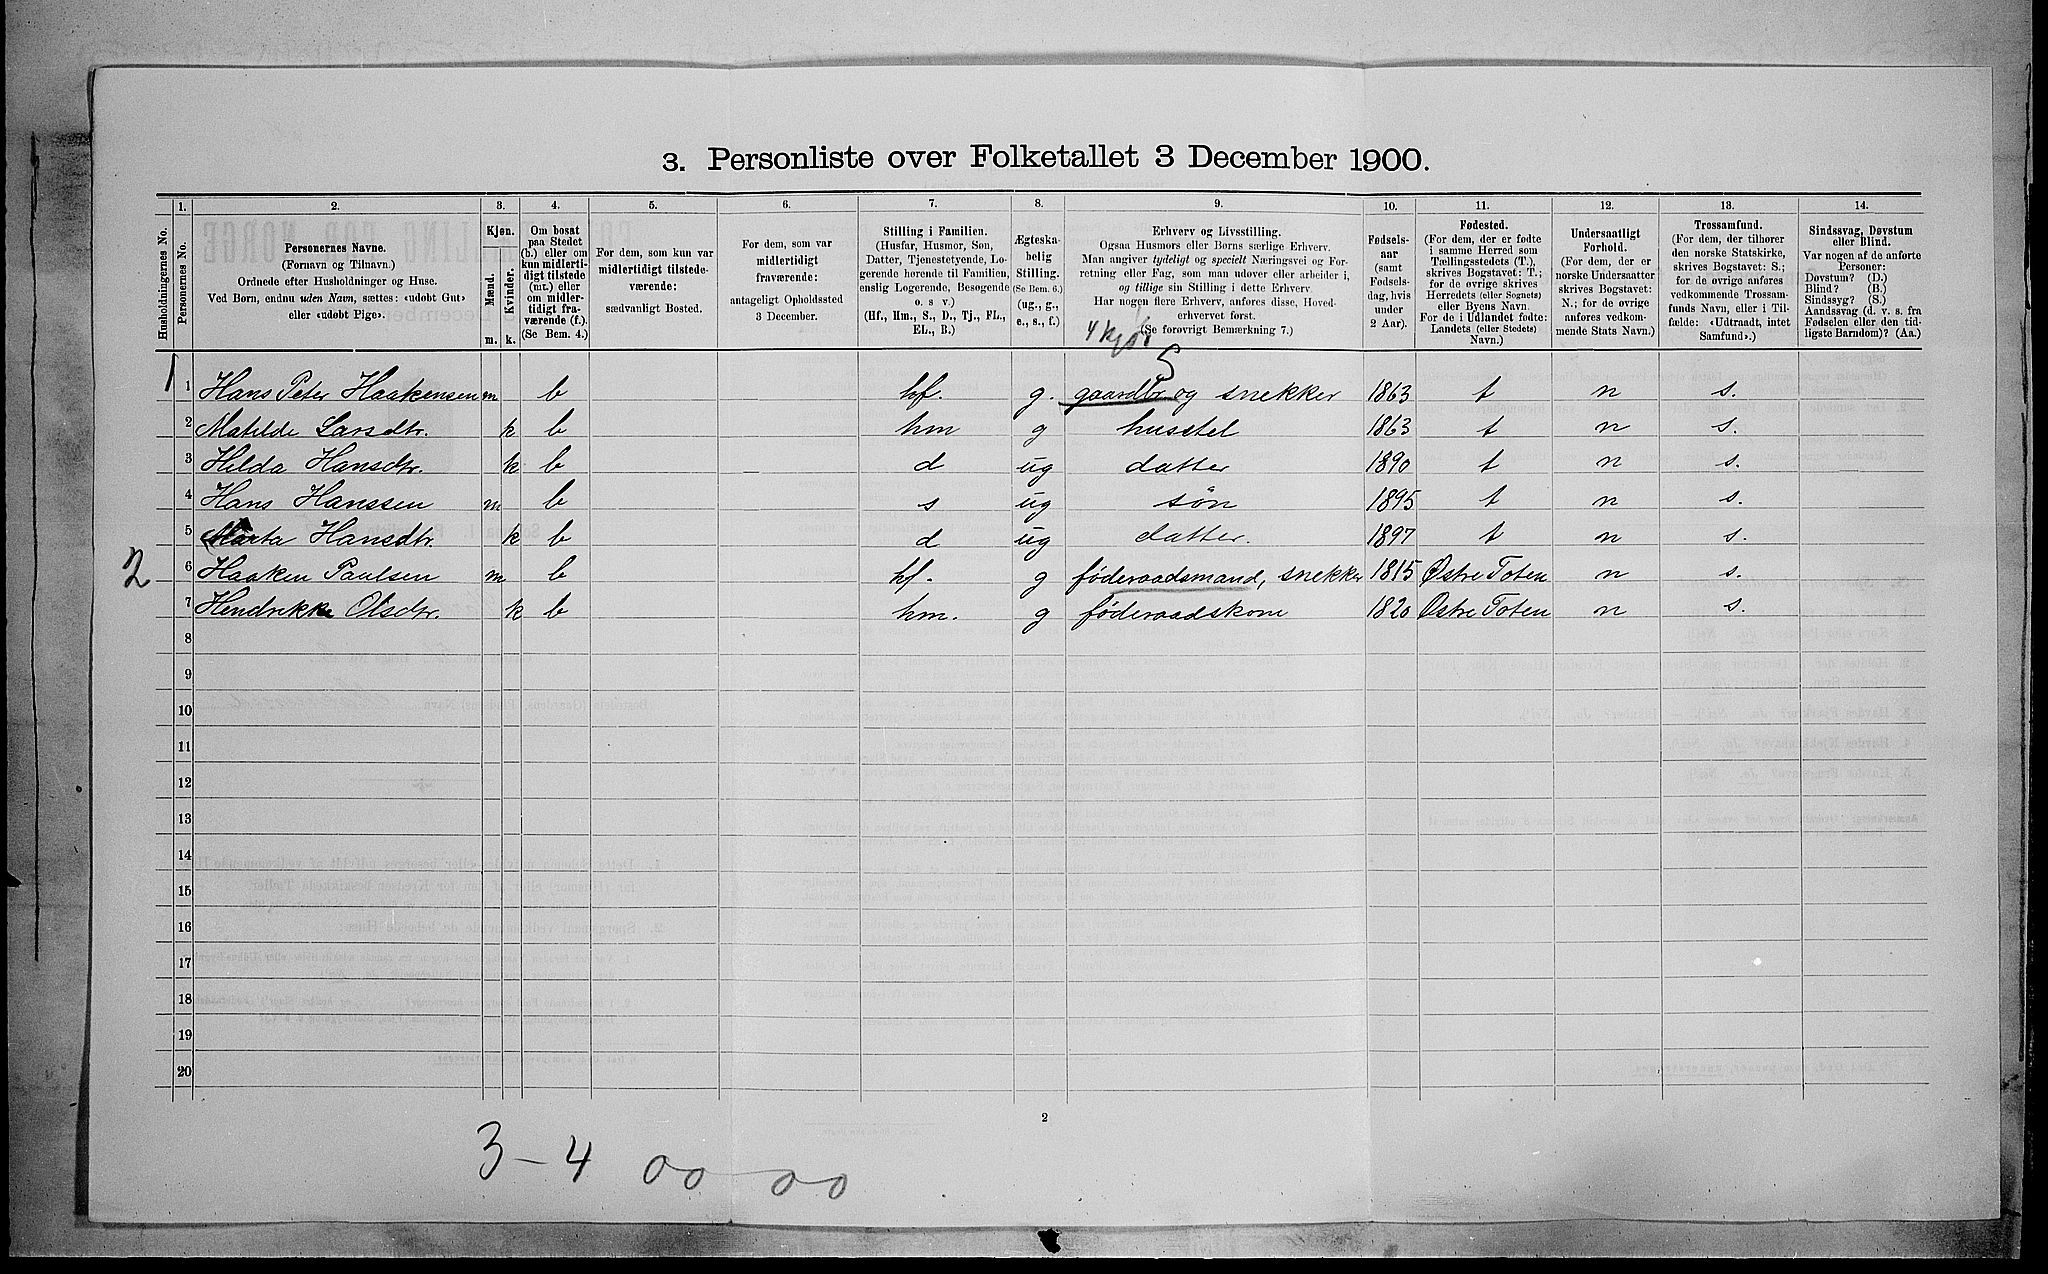 3. Personliste over Folketallet 3 December 1900.
Husholdningernes No.
1. Personernes No.
2.
Personernes Navne.
(Fornavn og Tilnavn.)
Ordnede efter Husholdninger og Huse.
Ved Børn, endnu uden Navn, sættes: «udøbt Gut»
eller «udøbt Pige».
3.
Kjøn.
Mænd.
Kvinder.
m. k.
4.
Om bosat
paa Stedet
(b.) eller om
kun midlerti-
digt tilstede
(mt.) eller
om midler-
tidigt fra-
værende (f.).
(Se Bem. 4.)
5.
For dem, som kun var
midlertidigt tilstede-
værende:
sædvanligt Bosted.
6.
For dem, som var
midlertidigt
fraværende:
antageligt Opholdssted
3 December.
7.
Stilling i Familien.
(Husfar, Husmor, Søn,
Datter, Tjenestetyende, Lo-
gerende hørende til Familien,
enslig Logerende, Besøgende
o. s v.)
(Hf., Hm., S., D., Tj., FL.,
EL., B.)
8.
Ægteska-
belig
Stilling.
(Se Bem. 6.)
(ug., g.,
e., s., f.)
9.
Erhverv og Livsstilling.
Ogsaa Husmors eller Børns særlige Erhverv.
Man angiver tydeligt og specielt Næringsvei og For-
retning eller Fag, som man udøver eller arbeider i,
og tillige sin Stilling i dette Erhverv.
Har nogen flere Erhverv, anføres disse, Hoved-
erhvervet først.
(Se forøvrigt Bemærkning 7.)
10.
Fødsels-
aar
(samt
Fødsels-
dag, hvis
under
2 Aar).
11.
Fødested.
(For dem, der er fødte
i samme Herred som
Tællingsstedets (T.),
skrives Bogstavet: T.;
for de øvrige skrives
Herredets (eller Sognets)
eller Byens Navn.
For de i Udlandet fødte:
Landets (eller Stedets)
Navn.)
12.
Undersaatligt
Forhold.
(For dem, der er
norske Undersaatter
skrives Bogstavet:
N.; for de øvrige
anføres vedkom-
mende Stats Navn.)
13.
Trossamfund.
(For dem, der tilhører
den norske Statskirke,
skrives Bogstavet: S.;
for de øvrige anføres
vedkommende Trossam-
funds Navn, eller i Til-
fælde: «Udtraadt, intet
Samfund».)
14.
Sindssvag, Døvstum
eller Blind.
Var nogen af de anførte
Personer:
Døvstum? (D.)
Blind? (B.)
Sindssyg? (S.)
Aandssvag (d. v. s. fra
Fødselen eller den tid-
ligste Barndom)? (Aa.)
S
1 1 Hans Peter Haakensen m b hf. g. gaardbr og snekker 1863 t n s.
2 Matilde Larsdtr. k b hm g husstel 1863 t n s.
3 Helda Hansdtr. k b d ug datter 1890 t n s.
4 Hans Hanssen m b s ug søn 1895 t n s.
5 Marta Hansdtr. k b d ug datter. 1897 t n s.
2 6 Haaken Paulsen m b hf. g føderaadsmand, snekker 1815 Østre Toten n s.
7 Hendrikke Olsdtr. k b hm. g føderaadskone 1820 Østre Toten n s.
8
9
10
11
12
13
14
15
16
17
18
19
20
2
3-4 00-00